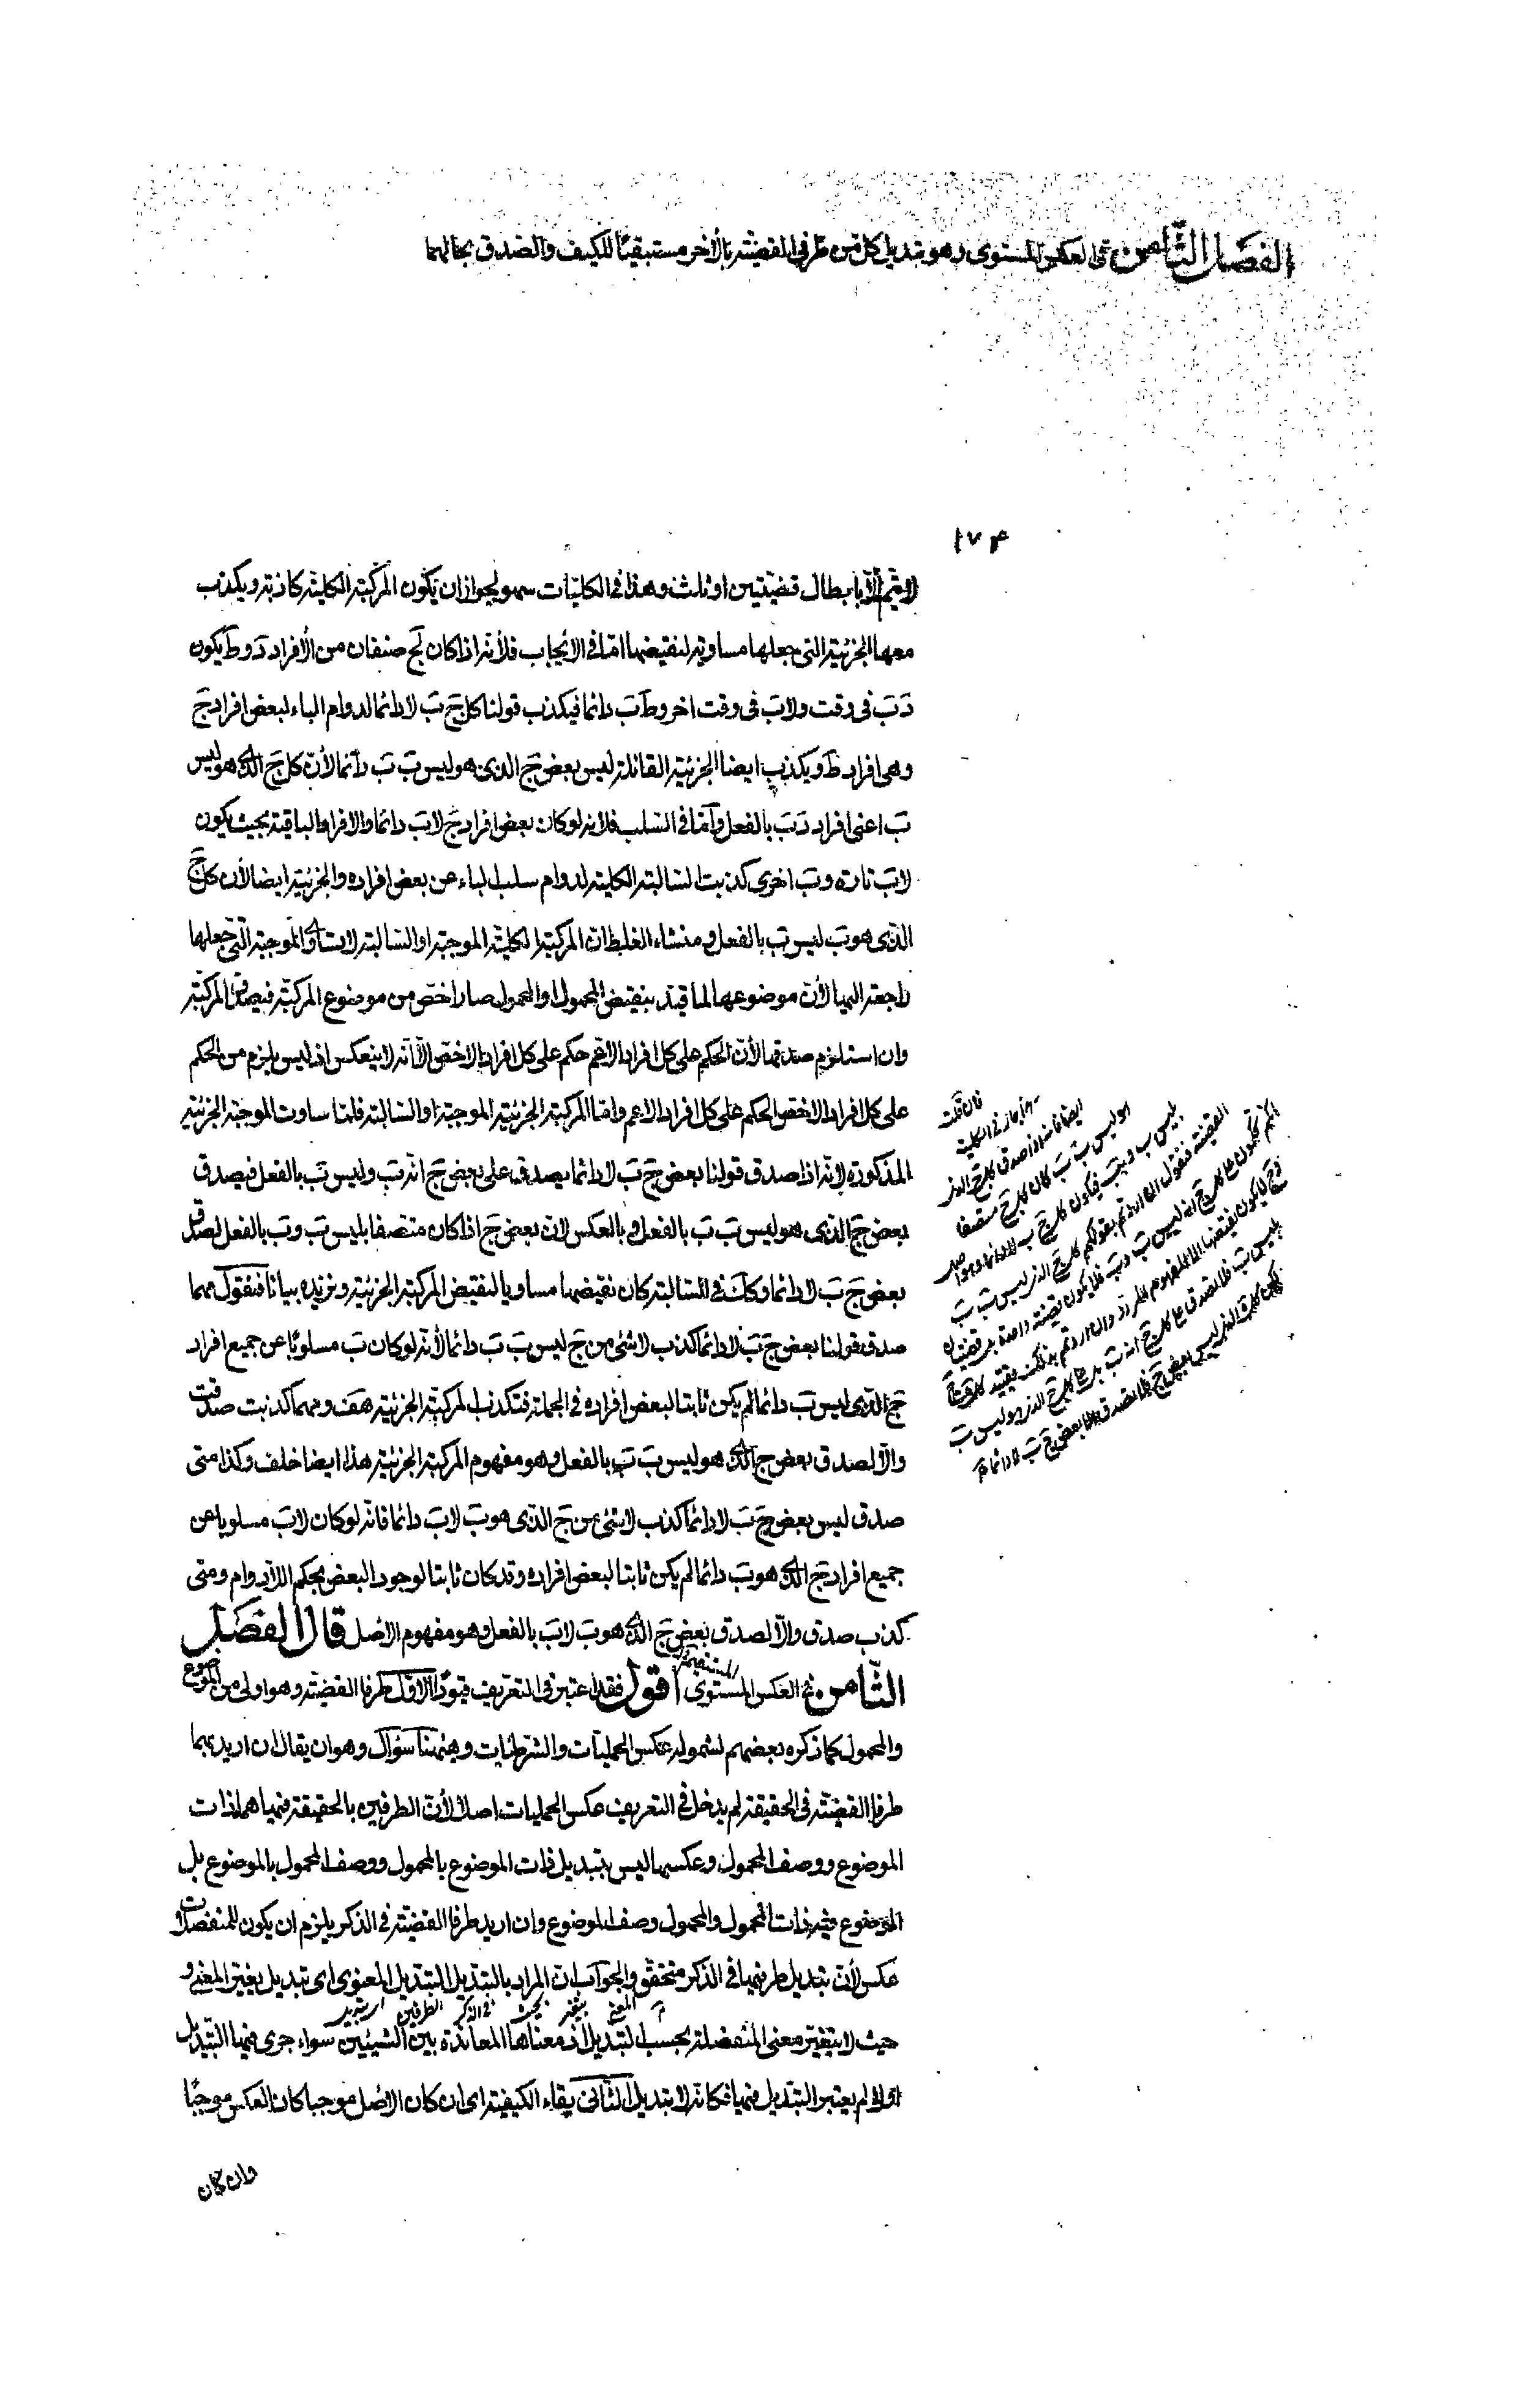 الفصل الثامن فى العكس المستوى وهو تبديل كل من طرفى القضية بالآخر مستبقيًا للكيف والصدق بحالهما
١٧۴
لا يتم الا بابطال قضيتين او ثلث وهذا فى الكليات سهو لجواز ان يكون المركبة الكلية كاذبة ويكذب
معها الجزئية التى جعلها مساوية لنقيضها اما فى الايجاب فلأنه اذا كان لج صنفان من الأفراد دَ وطَ يكون
دَ بَ فى وقت ولا بَ فى وقت اخر وطَ بَ دائما فيكذب قولنا كل جَ بَ لا دائما لدوام الباء لبعض افراد جَ
وهى افراد طَ ويكذب ايضا الجزئية القائلة ليس بعض جَ الذى هو ليس بَ بَ دائما لأن كل جَ الذى هو ليس
بَ اعنى افراد دَ بَ بالفعل وأما فى السلب فلانه لو كان بعض افراد جَ لا بَ دائما والافراد الباقية بحيث يكون
لا بَ تارة وبَ اخرى كذبت السالبة الكلية لدوام سلب الباء عن بعض افراده والجزئية ايضا لأن كل جَ
الذى هو بَ ليس بَ بالفعل ومنشاء الغلط ان المركبة الكلية الموجبة او السالبة لا يساوى الموجبة التى جعلها
راجعة اليها لأن موضوعها لما قيد بنقيض المحمول او المحمول صار اخص من موضوع المركبة فيصدق المركبة
وان استلزم صدقها لأن الحكم على كل افراد الاعم حكم على كل افراد الاخص الا انه لا ينعكس اذ ليس يلزم من الحكم
على كل افراد الاخص الحكم على كل افراد الاعم واما المركبة الجزئية الموجبة او السالبة فلما ساوت الموجبة الجزئية
المذكورة لانه اذا صدق قولنا بعض جَ بَ لا دائما يصدق على بعض جَ انه بَ وليس بَ بالفعل فيصدق
بعض جَ الذى هو ليس بَ بَ بالفعل وبالعكس لان بعض جَ اذا كان متصفا بليس بَ وبَ بالفعل لصدق
بعض جَ بَ لا دائما وكك فى السالبة كان نقيضها مساويا لنقيض المركبة الجزئية ونزيده بيانا فنقول مهما
صدق قولنا بعض جَ بَ لا دائما كذب لا شئ من جَ ليس بَ بَ دائما لأنه لو كان بَ مسلوبًا عن جميع افراد
جَ الذى ليس بَ دائما لم يكن ثابتا لبعض افراده فى الجملة فتكذب المركبة الجزئية هف ومهما كذبت صدقت
والا لصدق بعض جَ الذى هو ليس بَ بَ بالفعل وهو مفهوم المركبة الجزئية هذا ايضا خلف وكذا متى
صدق ليس بعض جَ بَ لا دائما كذب لا شئ من جَ الذى هو بَ لا بَ دائما فانه لو كان لا بَ مسلوبا عن
جميع افراد جَ الذى هو بَ دائما لم يكن ثابتا لبعض افراده وقد كان ثابتا لوجود البعض بحكم اللادوام ومتى
كذب صدق والا لصدق بعض جَ الذى هو بَ لا بَ بالفعل وهو مفهوم الاصل قال الفصل
الثامن فى العكس المستوى اقول فقد اعتبر فى التعريف قيودًا الاول طرفا القضية وهو اولى من الموضوع
والمحمول كما ذكره بعضهم لشموله عكس الحمليات والشرطيات وههنا سؤال وهو ان يقال ان اريد بهما
طرفا القضية فى الحقيقة لم يدخل فى التعريف عكس الحمليات اصلا لأن الطرفين بالحقيقة فيها هما ذات
الموضوع ووصف المحمول وعكسها ليس بتبديل ذات الموضوع بالمحمول ووصف المحمول بالموضوع بل
الموضوع فيه ذات المحمول والمحمول وصف الموضوع وان اريد طرفا القضية فى الذكر يلزم ان يكون للمنفصلات
عكس لأن تبديل طرفيها فى الذكر متحقق والجواب ان المراد بالتبديل التبديل المعنوى اى تبديل يغير المعنى و
اى تبديل الطرفين فى الذكر بحيث يتغير المعنى
حيث لا يتغير معنى المنفصلة بحسب التبديل اذ معناها المعاندة بين الشيئين سواء جرى فيها التبديل
او لا لم يعتبر التبديل فيها فكانه لا تبديل الثانى بقاء الكيفية اى ان كان الاصل موجبا كان العكس موجبًا
وان كان
فان قلت
ايضا فانه اذا صدق كل ج الذى
هو ليس ب ب كان كل ج متصفا
بليس ب وب فيكون كل ج ب لا دائما